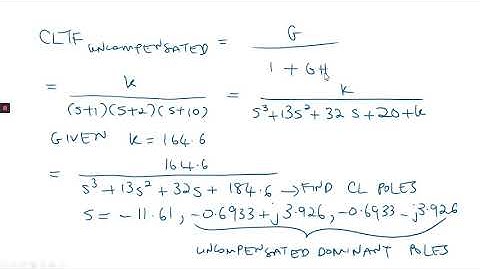 CLTF UNCOMPENSATED = G / 1 + GH
= K / (s+1)(s+2)(s+10) = K / s³+13s²+32s+20+K
GIVEN K = 164.6
= 164.6 / s³ + 13s² + 32s + 184.6 → FIND CL POLES
s = -11.61, -0.6933+j3.926, -0.6933-j3.926
UNCOMPENSATED DOMINANT POLES